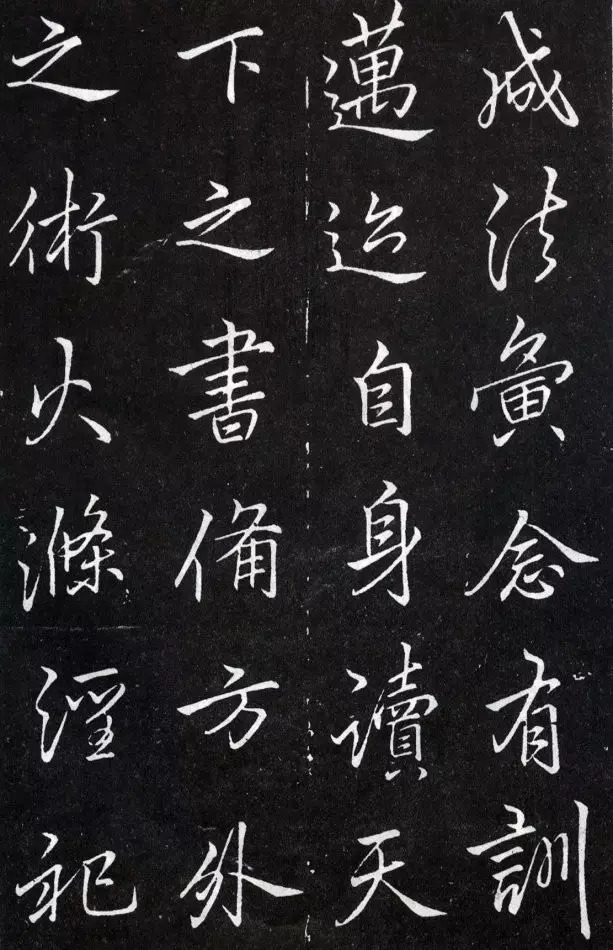 減法夤念有訓
邁迨自身讀天
下之書備方外
之術火滌淫祀